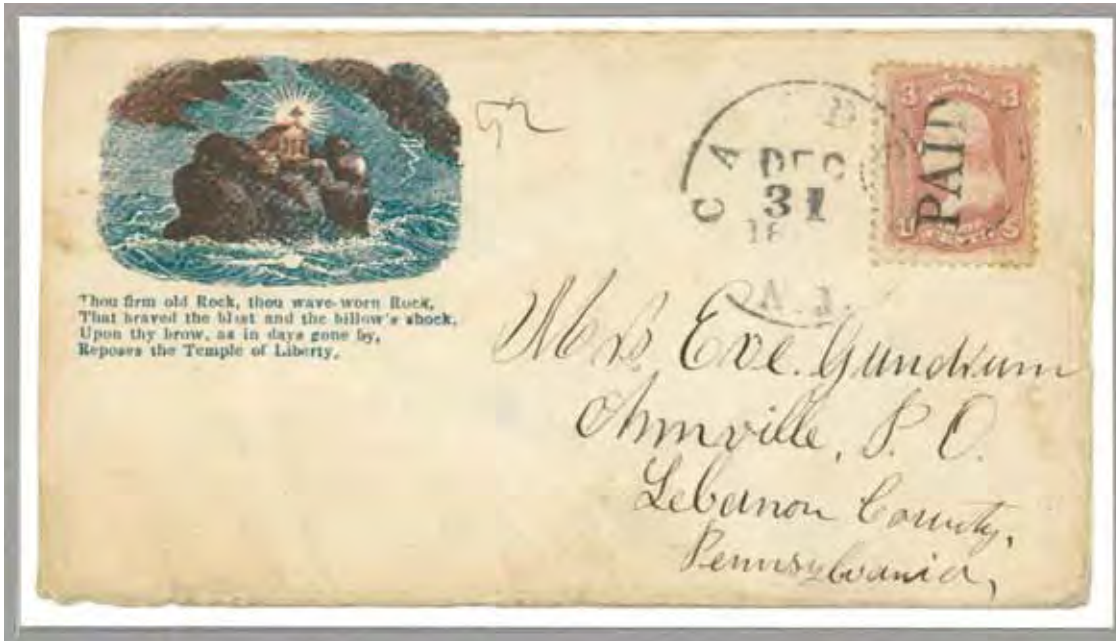 Thou firm old Rock, thou wave-worn Rock,
That braved the blast and the billow's shock,
Upon thy brow, as in days gone by,
Reposes the Temple of Liberty.
CA
DEC
31
18
3 3
PAID
Mrs. Eve. Gundrum
Annville, P. O.
Lebanon County,
Pennsylvania,